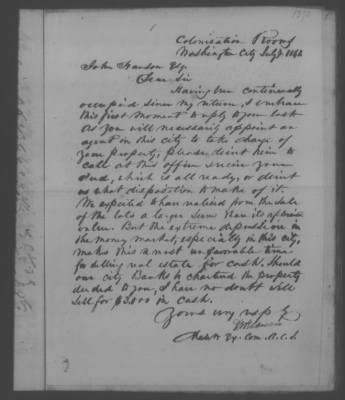 Colonization Rooms
Washington City July 1842
John Hanson Esq.
Dear Sir
Having been continually
occupied since my return, I embrace
this first moment to reply to your last
As you will necessarily appoint an
agent in this city to take charge of
your property, please direct him to
call at this office receive your
deed, which is all ready, or direct
us what disposition to make of it.
We expected to have realized from the sale
of the lots a larger sum than its
value. But the extreme depression in
the money market, especially in this city,
makes this a most unfavorable time
for selling real estate for cash. Should
our city Banks be chartered the property
deeded to you, I have no doubt will
sell for $3.800 in cash.
Yours very resp y
Ex. Com. A.C.S.